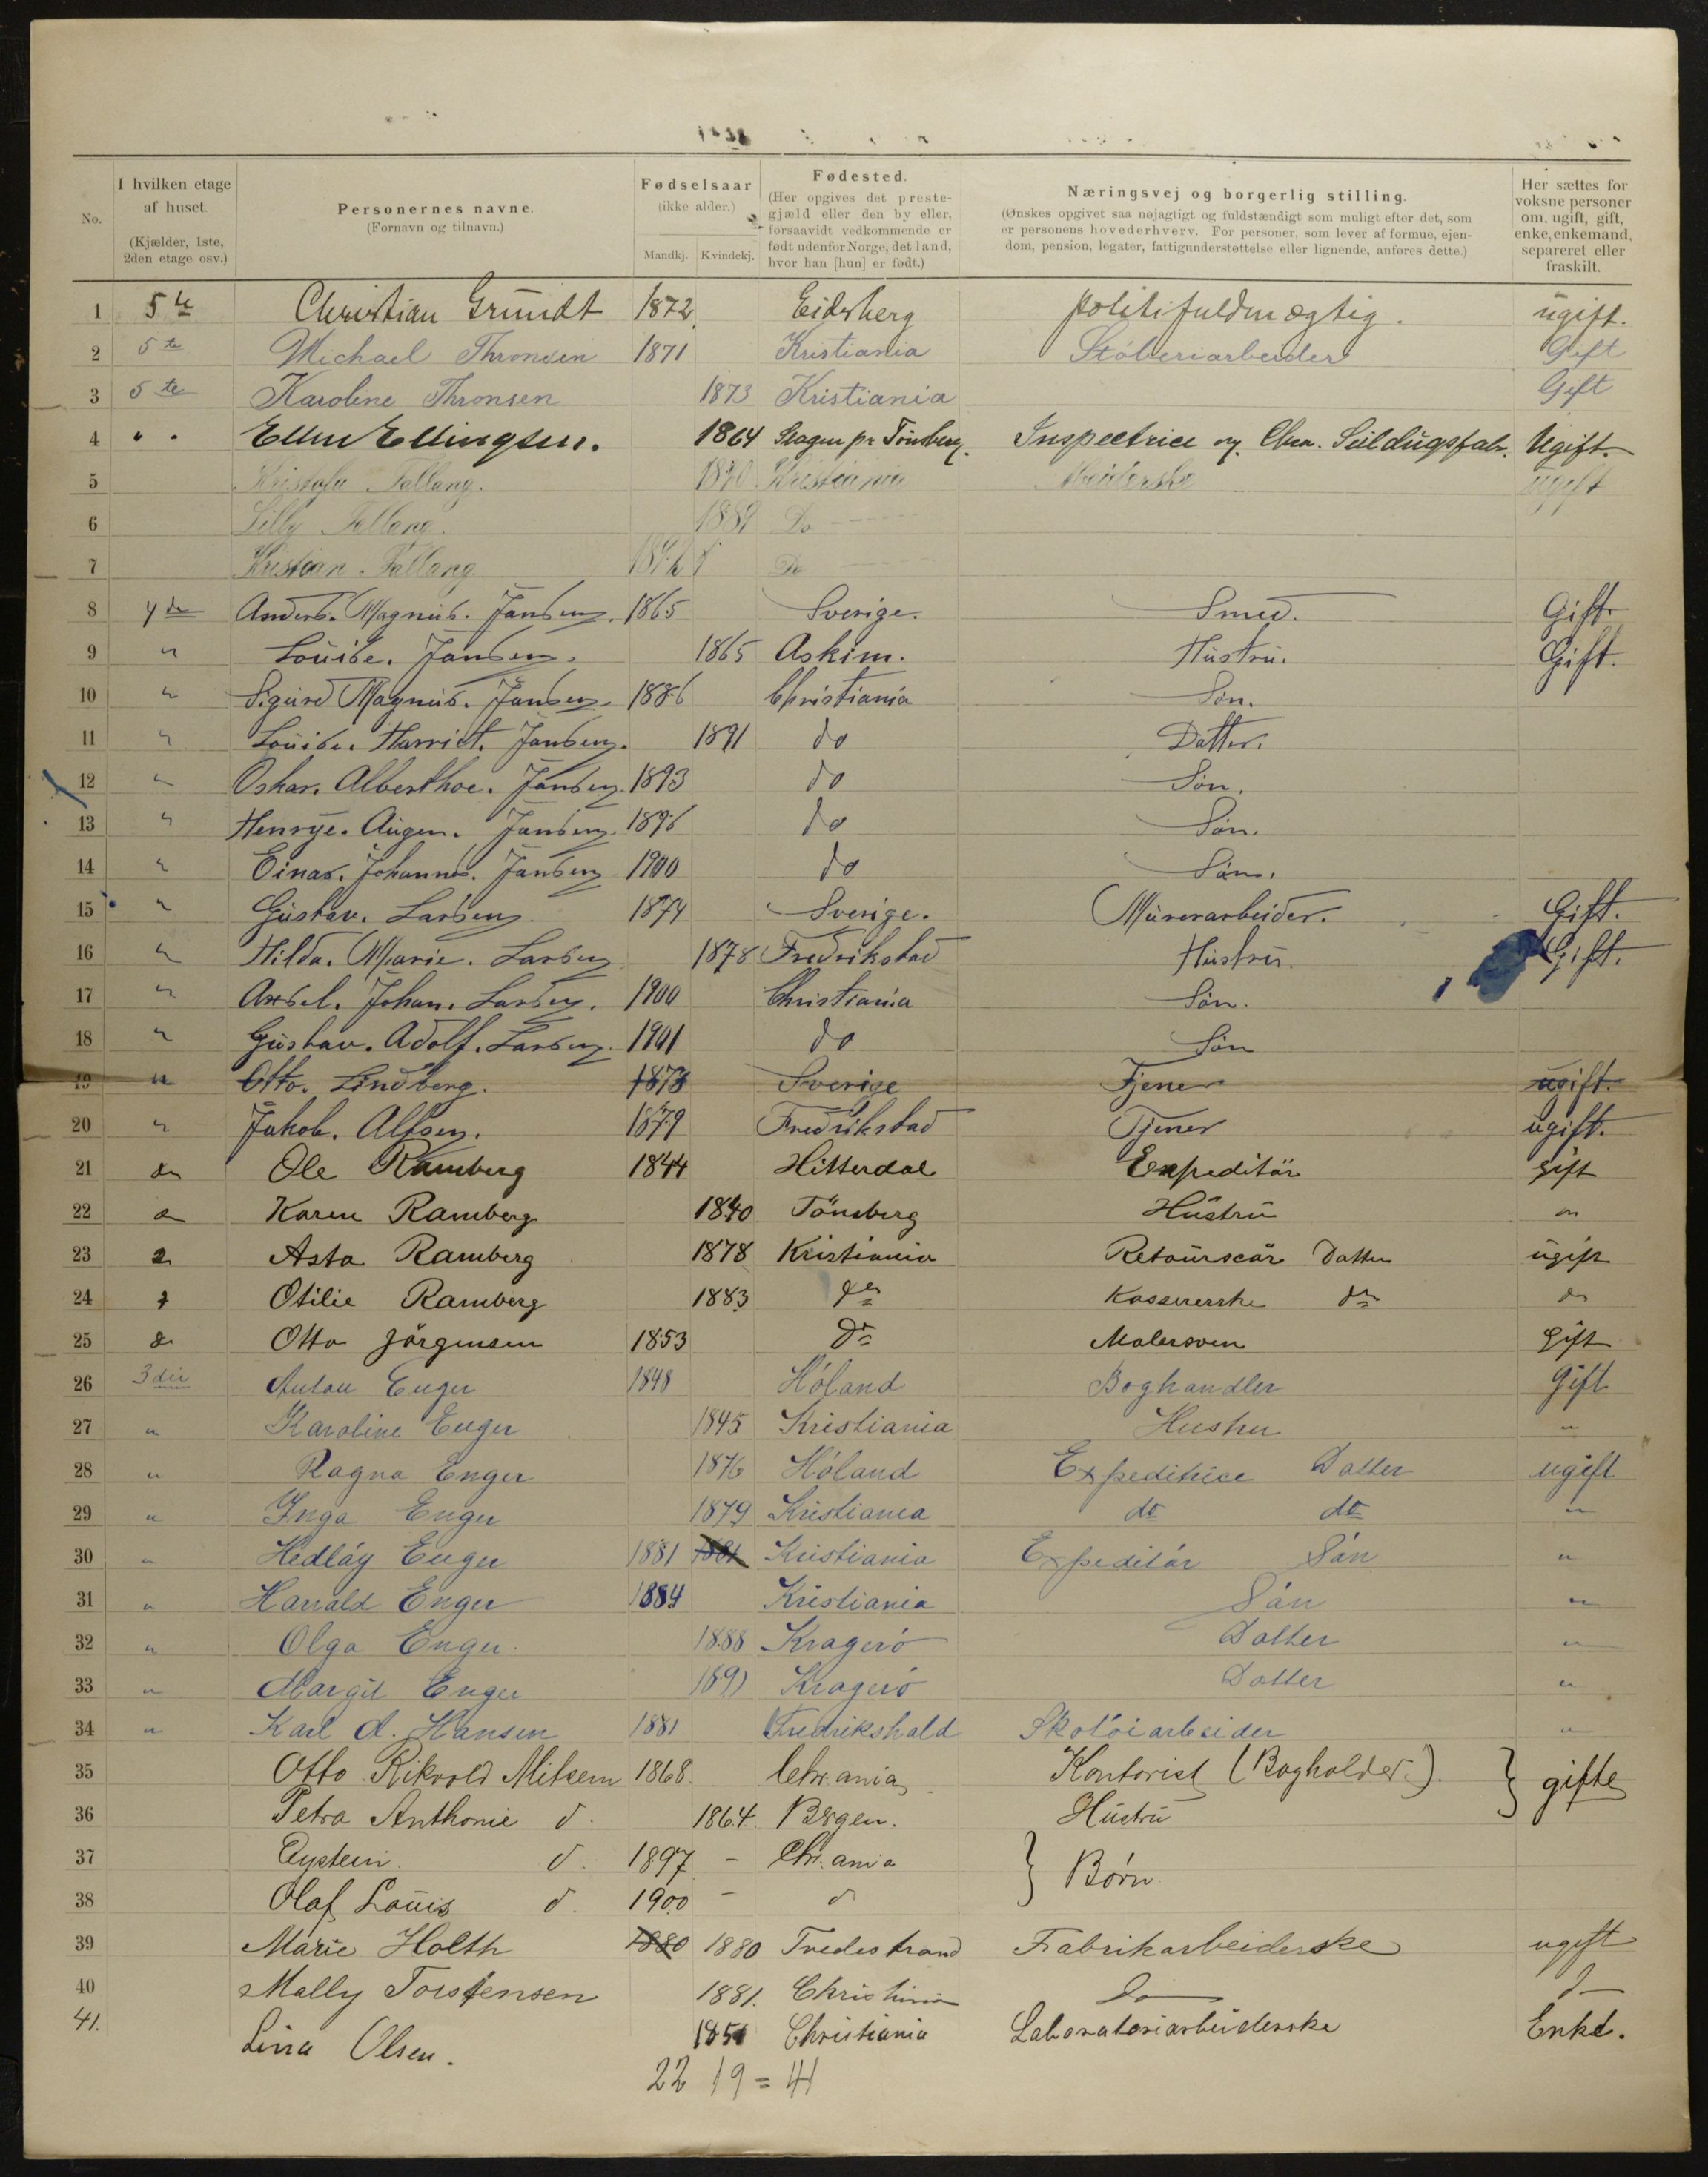 No.
I hvilken etage af huset. (Kjælder, 1ste, 2den etage osv.)
Personernes navne. (Fornavn og tilnavn.)
Fødselsaar (ikke alder.) Mandkj. Kvindekj.
Fødested. (Her opgives det prestegjæld eller den by eller, forsaavidt vedkommende er født udenfor Norge, det land, hvor han [hun] er født.)
Næringsvej og borgerlig stilling. (Ønskes opgivet saa nøjagtigt og fuldstændigt som muligt efter det, som er personens hovederhverv. For personer, som lever af formue, ejendom, pension, legater, fattigunderstøttelse eller lignende, anføres dette.)
Her sættes for voksne personer om. ugift, gift, enke, enkemand, separeret eller fraskilt.
1 5te Christian Grundt 1872 Eidsberg politifuldmægtig. ugift.
2 5te Michael Thronsen 1871 Kristiania Støberiarbeider Gift
3 5te Karoline Thronsen 1873 Kristiania Gift
4 " " Ellen Ellingsen. 1864 Slagen pr Tønsberg. Inspectrice Chra. Seildugsfabr. Ugift.
5 Kristofa Fallang. 1870 Kristiania ugift
6 Lilly Fallang. Do
7 Kristian Fallang Do
8 4de Anders. Magnus. Jansen. 1865 Sverige. Smed. Gift.
9 " Louise. Jansen. 1865 Askim. Hustru. Gift.
10 " Sigurd Magnus. Jansen. 1886 Christiania Søn.
11 " Louise. Harriet. Jansen. 1891 do Datter.
12 " Oskar. Alberthoe. Jansen. 1893 do Søn.
13 " Henrye. Augen. Jansen. 1896 do Søn.
14 " Einar. Johannes. Jansen 1900 do Søn.
15 " Gustav. Larsen. 1874 Sverige. Murerarbeider. Gift.
16 " Hilda. Marie. Larsen 1878 Fredrikstad Hustru. Gift.
17 " Axsel. Johan. Larsen. 1900 Christiania Søn.
18 " Gustav. Adolf. Larsen. 1901 do Søn
19 " Otto. Lindberg. 1878 Sverige Tjener ugift.
20 " Jakob. Alfsen. 1879 Fredrikstad Tjener ugift.
21 do Ole Ramberg 1844 Hitterdal Expeditör gift
22 do Karen Ramberg 1840 Tönsberg Hustru "
23 Asta Ramberg 1878 Kristiania Retourscör Datter ugift
24 Otilie Ramberg 1883 do Kassererske do do
25 do Otto Jörgensen 1853 do Malersven gift
26 3die Anton Enger 1848 Høland Boghandler Gift
27 " Karoline Enger 1845 Kristiania Hustru "
28 " Ragna Enger 1876 Høland Expeditrice Datter ugift
29 " Inga Enger 1879 Kristiania do do "
30 " Hedláy Enger 1881 1881 Kristiania Expeditør Søn "
31 " Harald Enger 1884 Kristiania Søn "
32 " Olga Enger 1888 Kragerø Datter "
33 " Margit Enger 1891 Kragerø Datter "
34 " Karl A. Hansen 1881 Fredrikshald Skotøiarbeider "
35 Otto Rikvold Mitsem 1868. Chr.ania Kontorist (Bogholder.). } gifte
36 Petra Anthonie d. 1864. Bergen. Hustru
37 Eystein. d. 1897 – Chr.ania } Børn
38 Olaf Louis d. 1900 – d
39 Marie Holth 1880 1880 Tvedestrand Fabrikarbeiderske ugift
40 Mally Torstensen 1881. Christiania Do do
41. Lina Olsen. 1851 Christiania Laboratoriarbeiderske Enke.
22 19 = 41